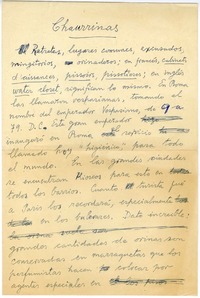 Chaurrinas
Retretes, lugares comunes, excusados,
mingitorios, orinaderos; en francés, cabinets
d'aisances, pissoirs pissotières; en inglés
water closet significan lo mismo. En Roma
las llamaron vespasianas, tomando el
nombre del emperador Vespasiano, de 9 a
79. D.C. Este gran emperador
inauguró en Roma servicio
llamado hoy "higiénico" para todo
el mundo. En las grandes ciudades
se encuentran Kioscos para este en
todos los barrios. Cuanto turista fué
a Paris los recordará, especialmente
en los bulevares. Dato increíble:
grandes cantidades de orina son
conservadas en que los
perfumistas hacen colocar por
agentes especiales en